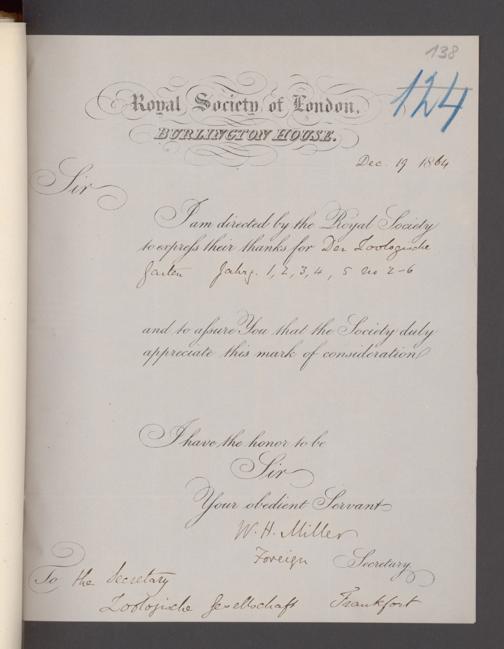 138
124
Royal Society of London.
BURLINGTON HOUSE.
Dec. 19 1864
Sir
I am directed by the Royal Society
to express their thanks for Der Zoologische
Garten Jahrg. 1, 2, 3, 4, 5 No 2-6
and to assure You that the Society duly
appreciate this mark of consideration
I have the honor to be
Sir
Your obedient Servant
W. H. Miller
Foreign Secretary
To the Secretary
Zoologische Gesellschaft Frankfort